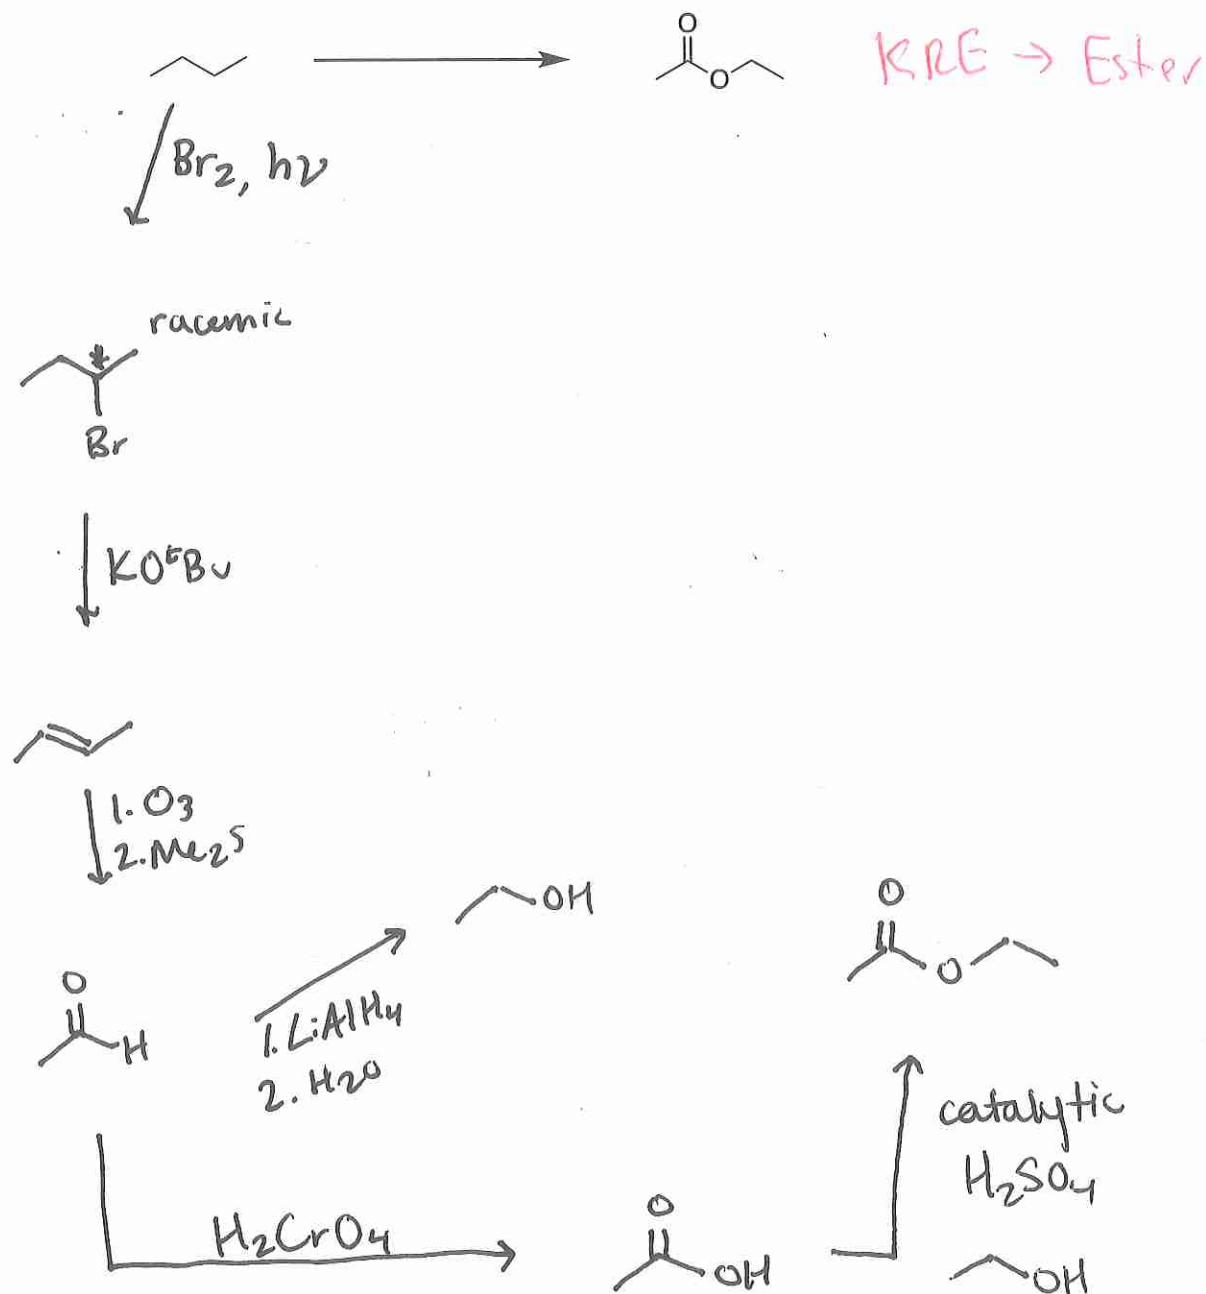 O
O
KRE → Ester
Br2, hν
racemic
*
Br
KOtBu
1. O3
2. Me2S
OH
O
H
1. LiAlH4
2. H2O
O
O
catalytic
H2SO4
OH
H2CrO4
O
OH